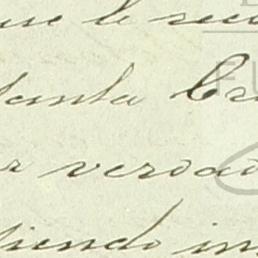 ue le recu
tanta Cr
r verdad
tiendo in